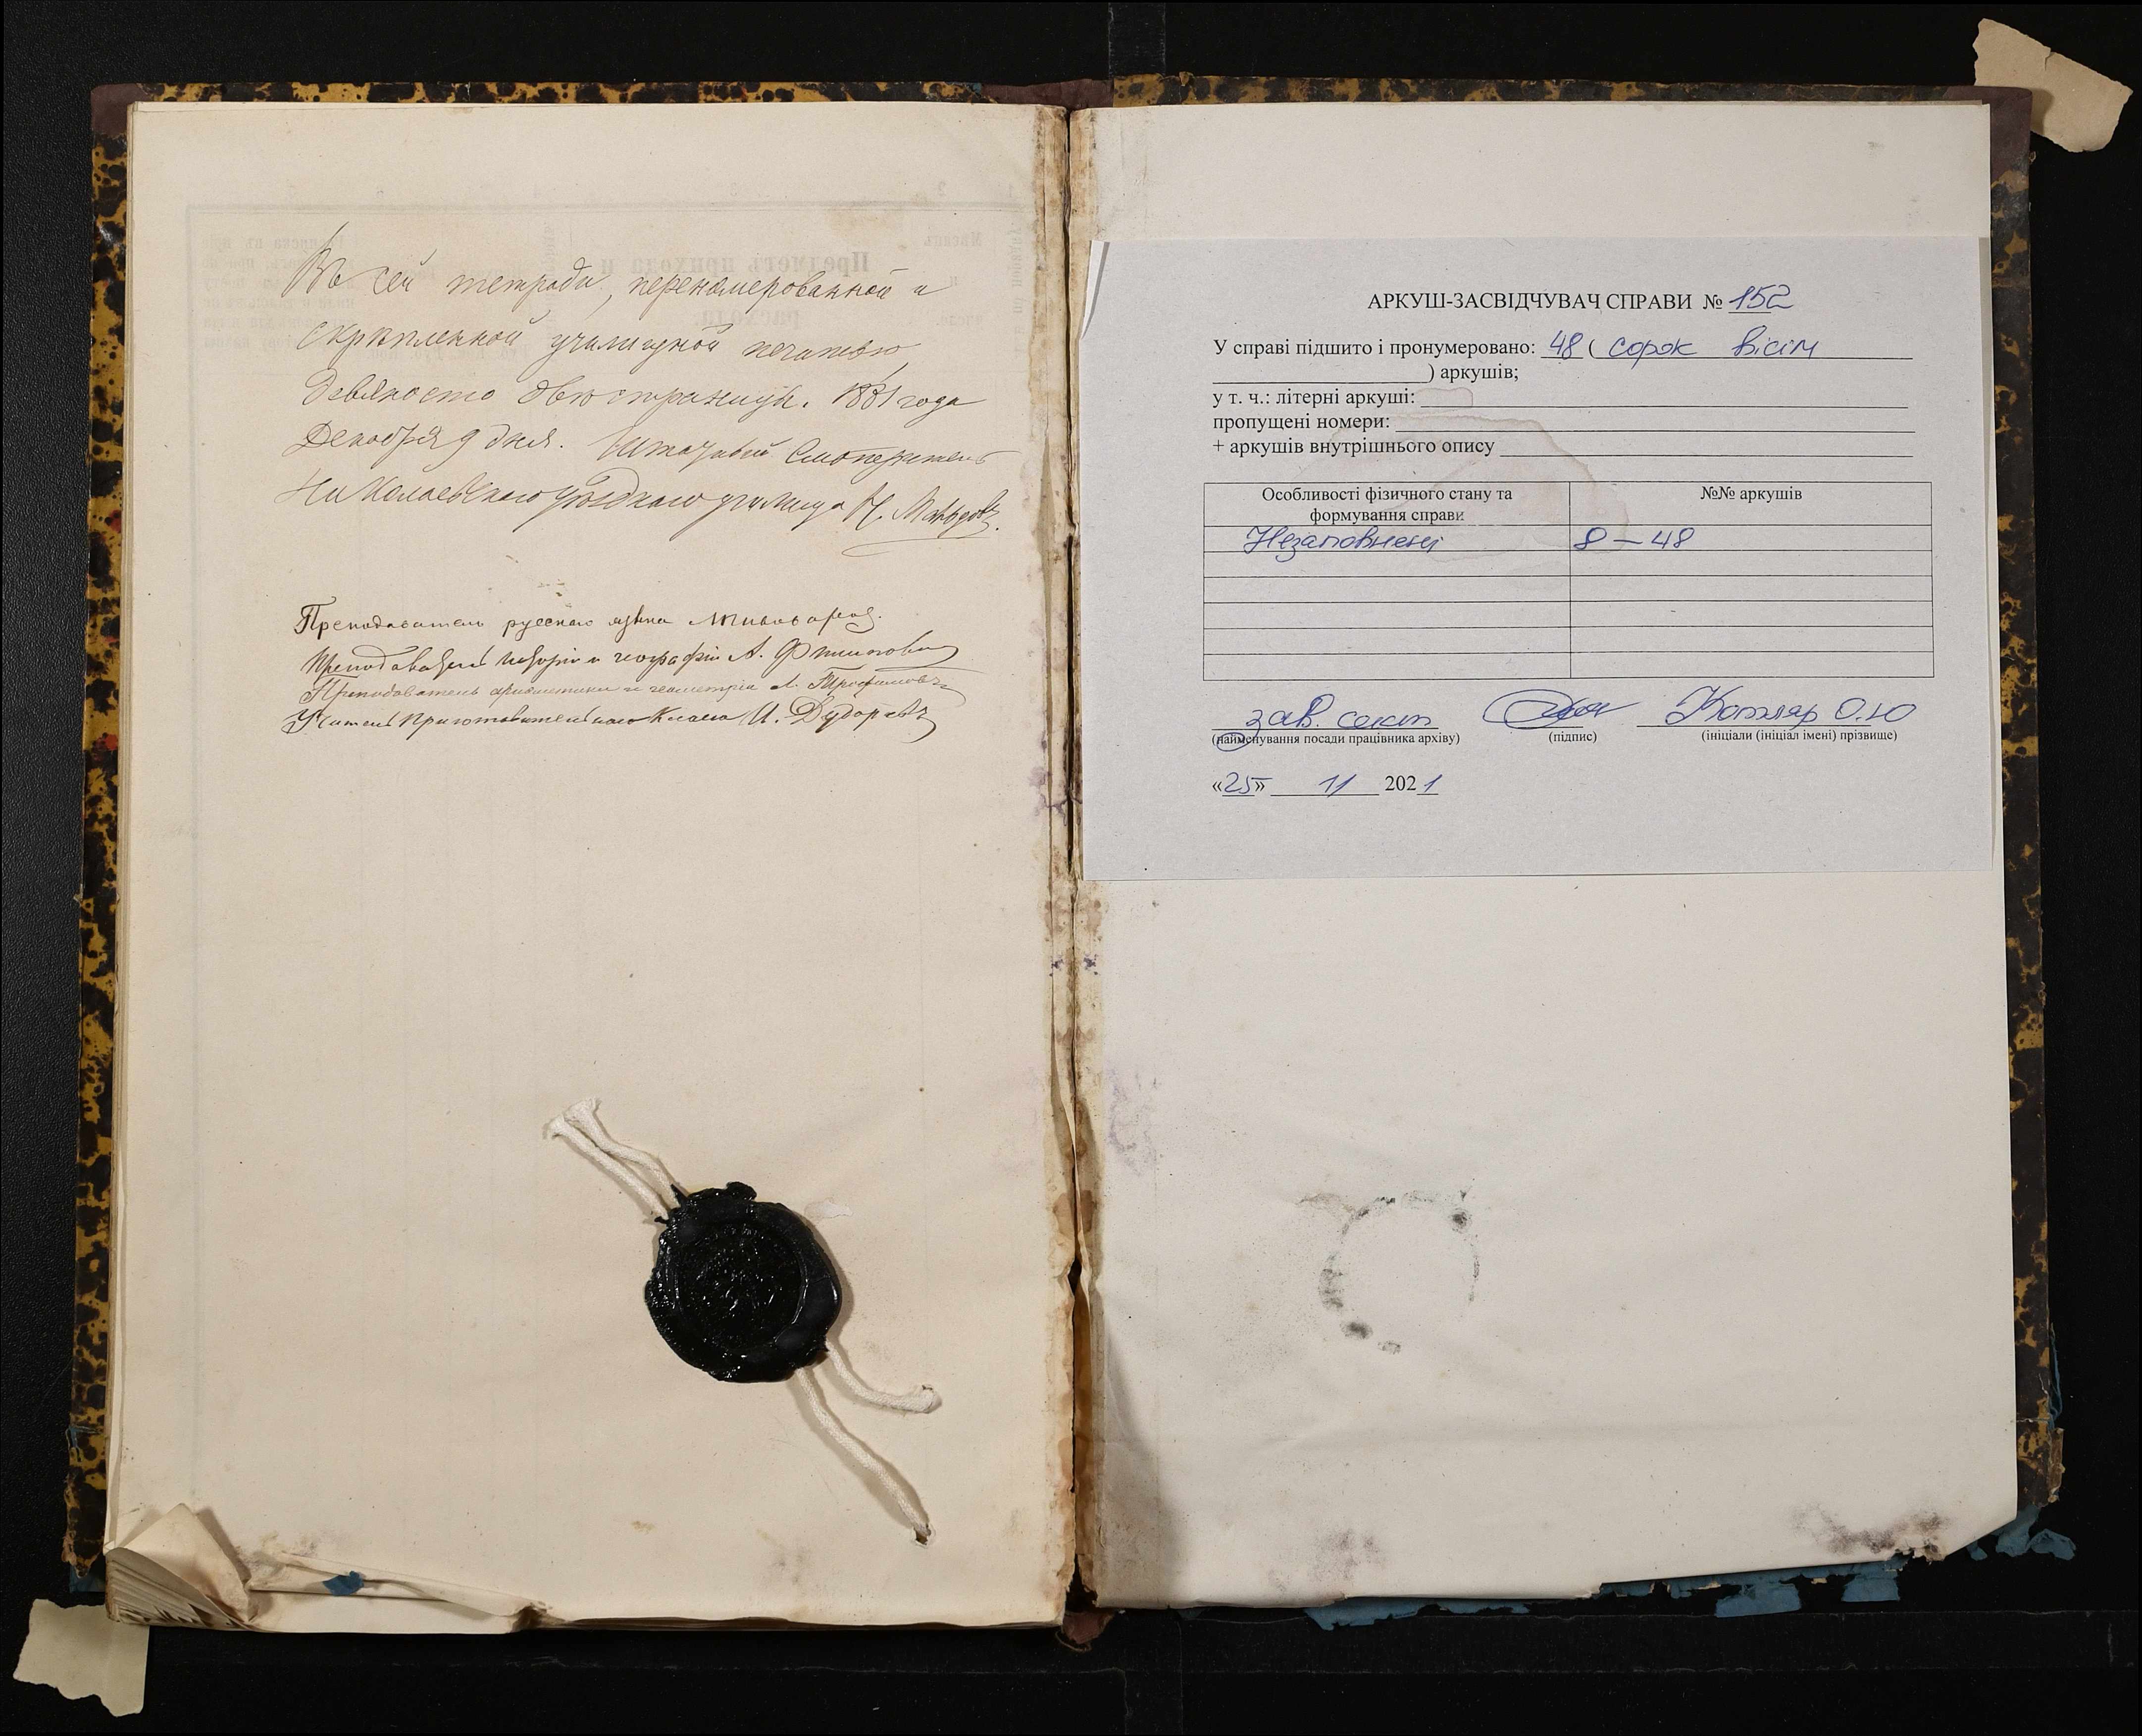 Въ сей тетради, перенумерованной и
скрѣпленной училищной печатью
девяносто двѣ страницы. 1881 года
Декабря 9 дня. Штатный Смотритель
Николаевскаго уѣзднаго училища Н.
Преподаватель русскаго языка
Преподаватель исторіи и географіи А. Филипповъ
Преподаватель ариѳметики и геометріи Л. Трофимовъ
Учитель приготовительнаго класса И. Дударевъ
АРКУШ-ЗАСВІДЧУВАЧ СПРАВИ № 152
У справі підшито і пронумеровано: 48 ( сорок вісім
) аркушів;
у т. ч.: літерні аркуші:
пропущені номери:
+ аркушів внутрішнього опису
Особливості фізичного стану та формування справи №№ аркушів
Незаповнені 8 – 48
зав. сект Котляр О.Ю
(найменування посади працівника архіву) (підпис) (ініціали (ініціал імені) прізвище)
«25» 11 2021